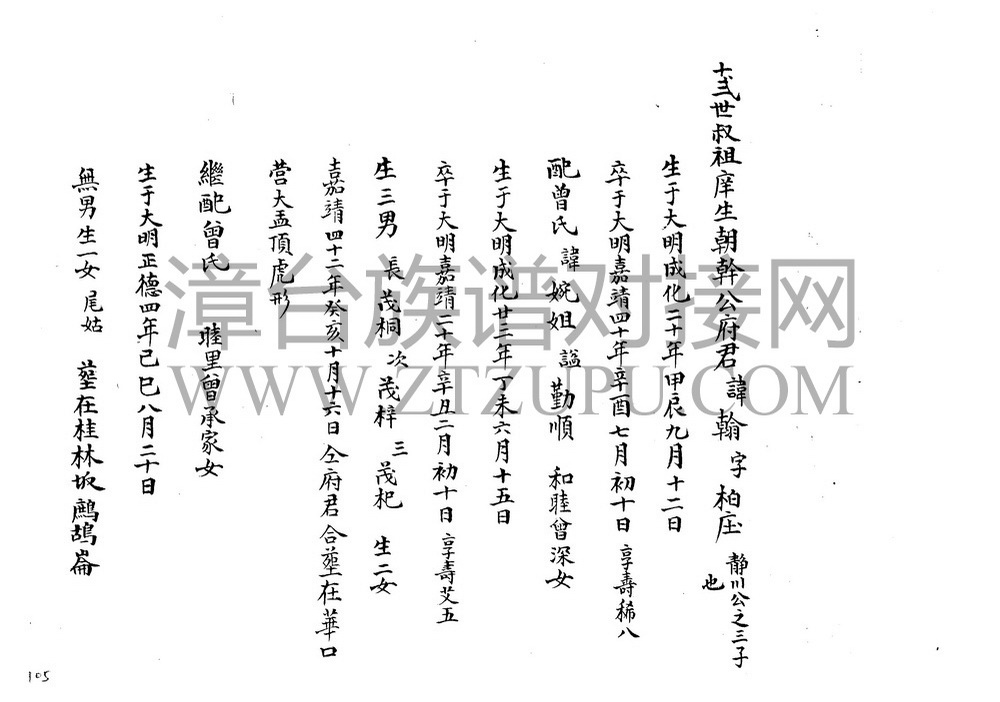 十弍世叔祖庠生朝幹公府君 諱翰 字柏庄 靜川公之三子也
生于大明成化二十年甲辰九月十二日
卒于大明嘉靖四十年辛酉七月初十日 享壽稀八
配曾氏 諱婉姐 謚勤順 和睦曾深女
生于大明成化廿三年丁未六月十五日
卒于大明嘉靖二十年辛丑二月初十日 享壽艾五
生三男 長茂桐 次茂梓 三茂杞 生二女
嘉靖四十二年癸亥十月十六日仝府君合塟在華口
营大孟頂虎形
繼配曾氏 睦里曾承家女
生于大明正德四年己巳八月二十日
無男生一女 尾姑 塟在桂林坂鷓鴣崙
漳台族谱对接网
WWW.ZTZUPU.COM
105